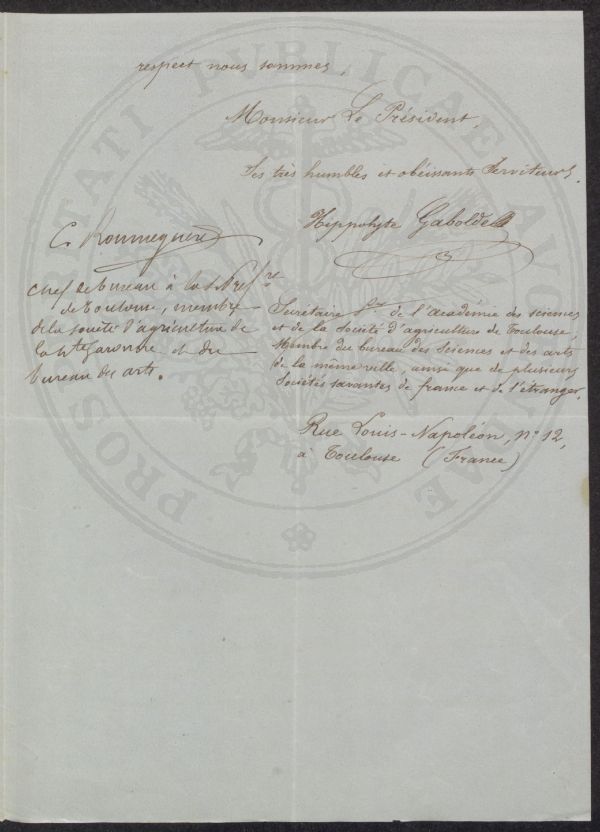 respect nous sommes,
Monsieur Le Président,
Ses très humbles et obéissants Serviteurs.
C. Roumeguère
chef de bureau à la
de Toulouse, membre
de la société d'agriculture de
la hte Garonne et du
bureau des arts.
Hippolyte Gabolde
Secrétaire de l'académie des sciences
et de la société d'agriculture de Toulouse,
Membre du bureau des sciences et des arts
de la même ville, ainsi que de plusieurs
Sociétés savantes de france et de l'étranger.
Rue Louis-Napoléon, n° 12,
à Toulouse (France)
PROSPERITATI PUBLICAE AUGENDAE